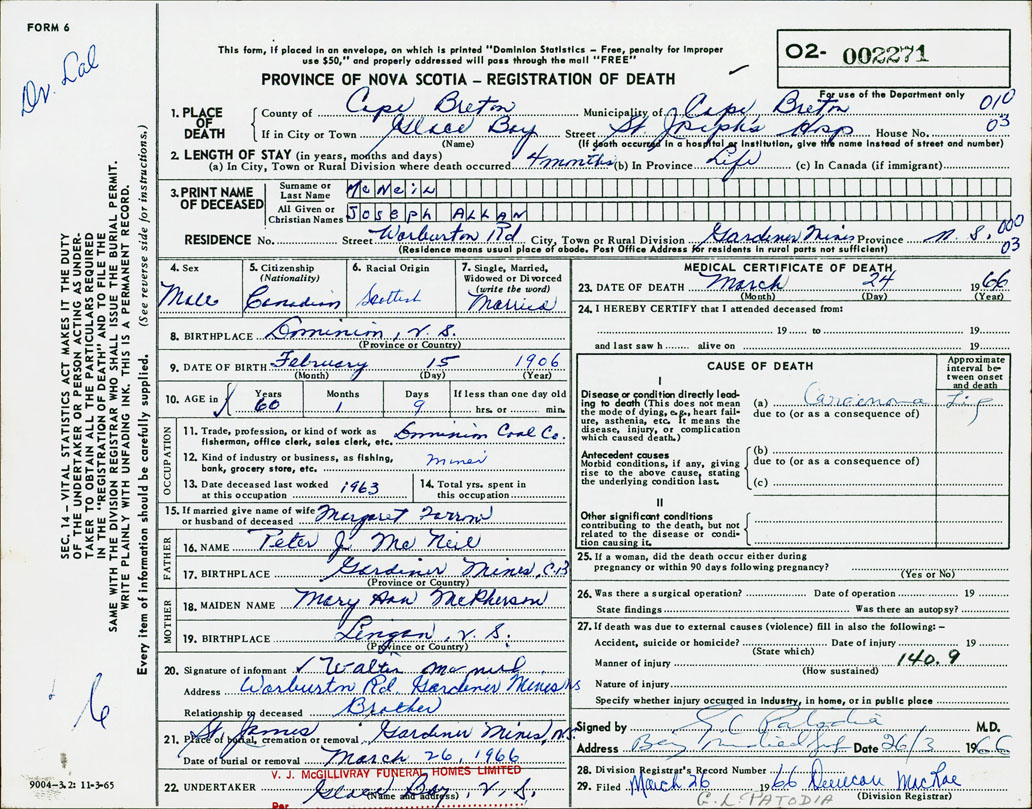 FORM 6
Dr. Lal
This form, if placed in an envelope, on which is printed "Dominion Statistics – Free, penalty for improper
use $50," and properly addressed will pass through the mail "FREE"
PROVINCE OF NOVA SCOTIA – REGISTRATION OF DEATH
02- 002271
For use of the Department only
010
03
SEC. 14 – VITAL STATISTICS ACT MAKES IT THE DUTY
OF THE UNDERTAKER OR PERSON ACTING AS UNDER-
TAKER TO OBTAIN ALL THE PARTICULARS REQUIRED
IN THE "REGISTRATION OF DEATH" AND TO FILE THE
SAME WITH THE DIVISION REGISTRAR WHO SHALL ISSUE THE BURIAL PERMIT.
WRITE PLAINLY WITH UNFADING INK. THIS IS A PERMANENT RECORD.
Every item of information should be carefully supplied. (See reverse side for instructions.)
1. PLACE OF DEATH
County of Cape Breton Municipality of Cape Breton
If in City or Town Glace Bay Street St. Joseph's Hosp House No.
(Name) (If death occurred in a hospital or institution, give the name instead of street and number)
2. LENGTH OF STAY (in years, months and days)
(a) In City, Town or Rural Division where death occurred 4 months (b) In Province Life (c) In Canada (if immigrant)
3. PRINT NAME OF DECEASED
Surname or Last Name McNeil
All Given or Christian Names JOSEPH ALLAN
RESIDENCE No. Street Warburton Rd City, Town or Rural Division Gardiner Mines Province N.S. 000
03
(Residence means usual place of abode. Post Office Address for residents in rural parts not sufficient)
4. Sex Male
5. Citizenship (Nationality) Canadian
6. Racial Origin Scottish
7. Single, Married, Widowed or Divorced (write the word) Married
8. BIRTHPLACE Dominion, N.S.
(Province or Country)
9. DATE OF BIRTH February 15 1906
(Month) (Day) (Year)
10. AGE in Years 60 Months 1 Days 9 If less than one day old hrs. or min.
OCCUPATION
11. Trade, profession, or kind of work as fisherman, office clerk, sales clerk, etc. Dominion Coal Co.
12. Kind of industry or business, as fishing, bank, grocery store, etc. miner
13. Date deceased last worked at this occupation 1963
14. Total yrs. spent in this occupation
15. If married give name of wife or husband of deceased Margaret Farrow
FATHER
16. NAME Peter J. Mc Neil
17. BIRTHPLACE Gardiner Mines, C.B
(Province or Country)
MOTHER
18. MAIDEN NAME Mary Ann McPherson
19. BIRTHPLACE Lingan, N.S.
(Province or Country)
20. Signature of informant Walter McNeil
Address Warburton Rd. Gardiner Mines NS
Relationship to deceased Brother
21. Place of burial, cremation or removal St. James Gardiner Mines, N.S.
Date of burial or removal March 26, 1966
22. UNDERTAKER V. J. McGILLIVRAY FUNERAL HOMES LIMITED
Glace Bay, N.S.
(Name and address)
Per
9004–3.2: 11-3-65
MEDICAL CERTIFICATE OF DEATH
23. DATE OF DEATH March 24 1966
(Month) (Day) (Year)
24. I HEREBY CERTIFY that I attended deceased from:
19 to 19
and last saw h alive on 19
CAUSE OF DEATH
Approximate interval between onset and death
I
Disease or condition directly leading to death (This does not mean the mode of dying, e.g., heart failure, asthenia, etc. It means the disease, injury, or complication which caused death.)
(a) Carcinoma Lip
due to (or as a consequence of)
Antecedent causes
Morbid conditions, if any, giving rise to the above cause, stating the underlying condition last.
(b)
due to (or as a consequence of)
(c)
II
Other significant conditions
contributing to the death, but not related to the disease or condition causing it.
25. If a woman, did the death occur either during
pregnancy or within 90 days following pregnancy?
(Yes or No)
26. Was there a surgical operation? Date of operation 19
State findings Was there an autopsy?
27. If death was due to external causes (violence) fill in also the following:–
Accident, suicide or homicide? Date of injury 19
(State which)
Manner of injury 140.9
(How sustained)
Nature of injury
Specify whether injury occurred in industry, in home, or in public place
Signed by G L Patodia M.D.
Address Bay Date 26/3 1966
28. Division Registrar's Record Number
29. Filed March 26 1966 Duncan MacRae
(Division Registrar)
G. L. PATODIA